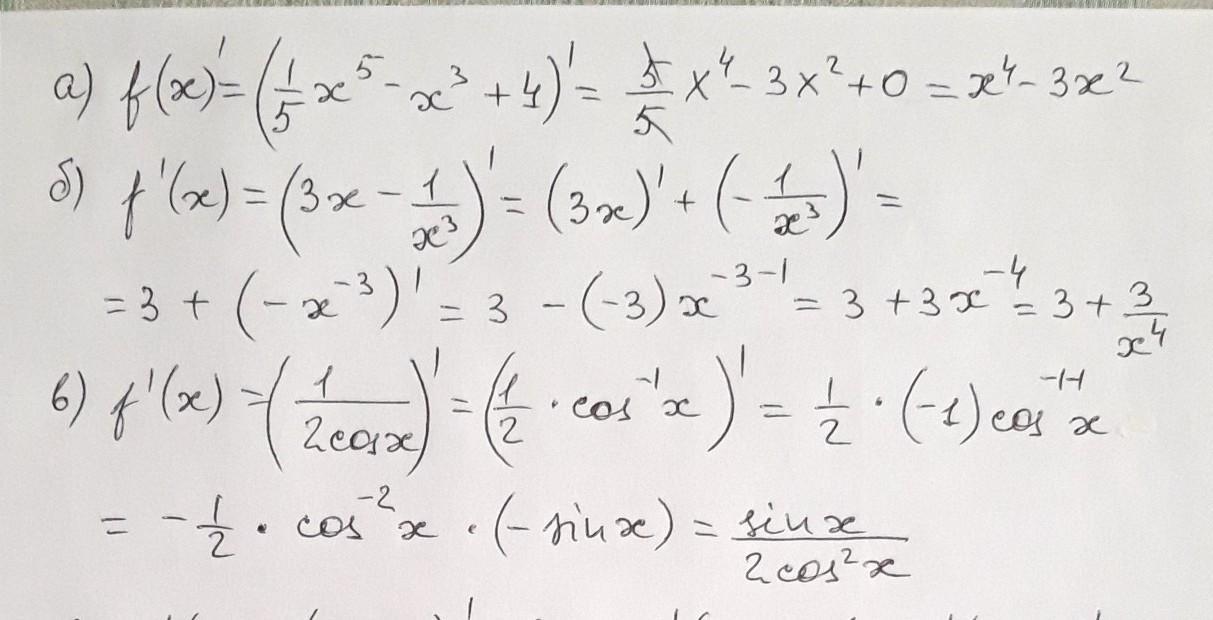 а) f(x)' = (1/5 x⁵ - x³ + 4)' = 5/5 x⁴ - 3x² + 0 = x⁴ - 3x²
б) f'(x) = (3x - 1/x³)' = (3x)' + (-1/x³)' =
= 3 + (-x⁻³)' = 3 - (-3)x⁻³⁻¹ = 3 + 3x⁻⁴ = 3 + 3/x⁴
в) f'(x) = (1/2cosx)' = (1/2 · cos⁻¹x)' = 1/2 · (-1)cos⁻¹⁻¹x
= -1/2 · cos⁻²x · (-sinx) = sinx/2cos²x